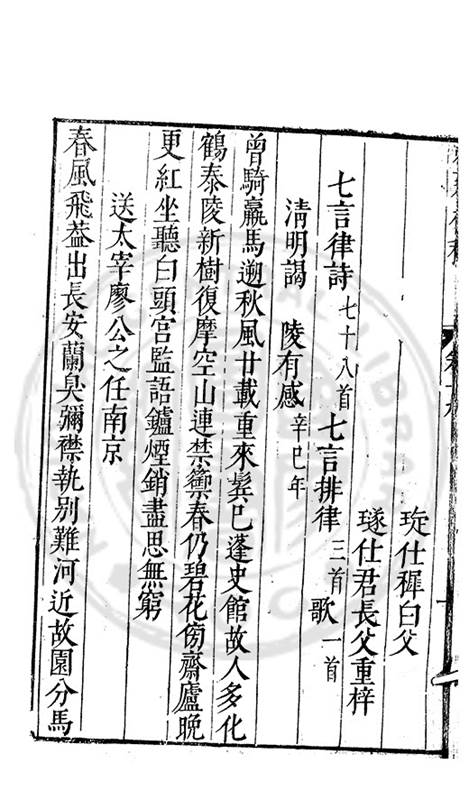 琁仕穉白父
璲仕君長父重梓
七言律詩七十八首七言排律三首歌一首
淸明謁 陵有感辛巳年
曾騎羸馬遡秋風廿載重來鬂已蓬史館故人多化
鶴泰陵新樹復摩空山連禁籞春仍碧花傍齋廬晚
更紅坐聽白頭宮監語鑪煙銷盡思無窮
送太宰廖公之任南京
春風飛葢出長安蘭臭彌襟執别難河近故園分馬